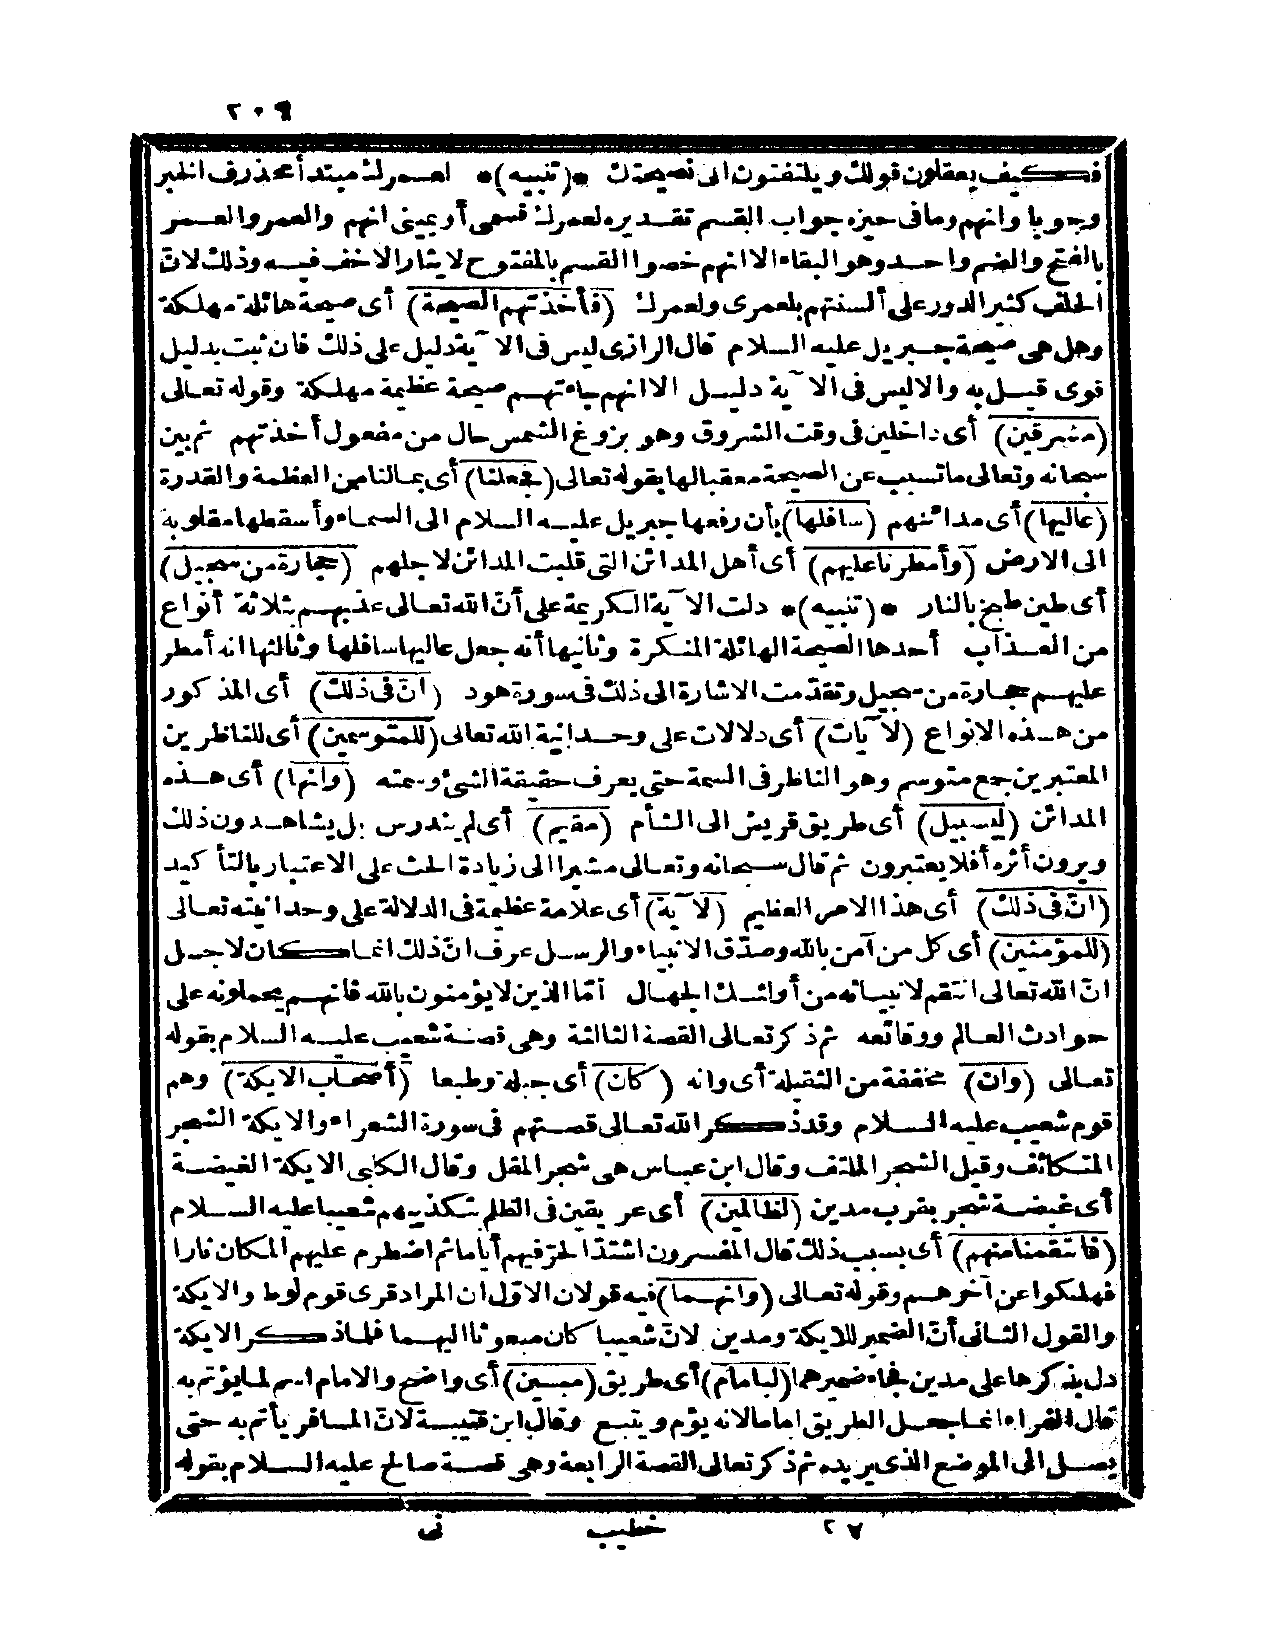 ٢٠٩
فكيف يعقلون قولك ويلتفتون الى نصيحتك *(تنبيه)* لعمرك مبتدأ محذوف الخبر
وجوبا وانهم وما فى حيزه جواب القسم تقديره لعمرك قسمى أو يمينى انهم والعمر والعمر
بالفتح والضم واحد وهو البقاء الا انهم خصوا القسم بالمفتوح لايثار الاخف فيه وذلك لان
الحلف كثير الدور على ألسنتهم بلعمرى ولعمرك (فأخذتهم الصيحة) أى صيحة هائلة مهلكة
وهل هى صيحة جبريل عليه السلام قال الرازى ليس فى الآية دليل على ذلك فان ثبت بدليل
قوى قيل به والا ليس فى الآية دليل الا انهم جاءتهم صيحة عظيمة مهلكة وقوله تعالى
(مشرقين) أى داخلين فى وقت الشروق وهو بزوغ الشمس حال من مفعول أخذتهم ثم بين
سبحانه وتعالى ما تسبب عن الصيحة معقبا لها بقوله تعالى (فجعلنا) أى بما لنا من العظمة والقدرة
(عاليها) أى مدائنهم (سافلها) بأن رفعها جبريل عليه السلام الى السماء وأسقطها مقلوبة
الى الارض (وأمطرنا عليهم) أى أهل المدائن التى قلبت المدائن لاجلهم (حجارة من سجيل)
أى طين طبخ بالنار *(تنبيه)* دلت الآية الكريمة على أنّ الله تعالى عذبهم بثلاثة أنواع
من العذاب أحدها الصيحة الهائلة المنكرة وثانيها أنه جعل عاليها سافلها وثالثها انه أمطر
عليهم حجارة من سجيل وتقدّمت الاشارة الى ذلك فى سورة هود (انّ فى ذلك) أى المذكور
من هذه الانواع (لآيات) أى دلالات على وحدانية الله تعالى (للمتوسمين) أى للناظرين
المعتبرين جمع متوسم وهو الناظر فى السمة حتى يعرف حقيقة الشئ وسمته (وانها) أى هذه
المدائن (لبسبيل) أى طريق قريش الى الشأم (مقيم) أى لم يندرس بل يشاهدون ذلك
ويرون أثره أفلا يعتبرون ثم قال سبحانه وتعالى مشيرا الى زيادة الحث على الاعتبار بالتأكيد
(انّ فى ذلك) أى هذا الامر العظيم (لآية) أى علامة عظيمة فى الدلالة على وحدانيته تعالى
(للمؤمنين) أى كل من آمن بالله وصدّق الانبياء والرسل عرف انّ ذلك انما كان لاجل
انّ الله تعالى انتقم لانبيائه من أولئك الجهال أمّا الذين لا يؤمنون بالله فانهم يحملونه على
حوادث العالم ووقائعه ثم ذكر تعالى القصة الثالثة وهى قصة شعيب عليه السلام بقوله
تعالى (وان) مخففة من الثقيلة أى وانه (كان) أى جبلة وطبعا (أصحاب الايكة) وهم
قوم شعيب عليه السلام وقد ذكر الله تعالى قصتهم فى سورة الشعراء والايكة الشجر
المتكاثف وقيل الشجر الملتف وقال ابن عباس هى شجر المقل وقال الكلبى الايكة الغيضة
أى غيضة شجر بقرب مدين (لظالمين) أى عريقين فى الظلم بتكذيبهم شعيبا عليه السلام
(فانتقمنا منهم) أى بسبب ذلك قال المفسرون اشتدّ الحرّ فيهم أياما ثم اضطرم عليهم المكان نارا
فهلكوا عن آخرهم وقوله تعالى (وانهما) فيه قولان الاوّل ان المراد قرى قوم لوط والايكة
والقول الثانى أنّ الضمير للايكة ومدين لانّ شعيبا كان مبعوثا اليهما فلما ذكر الايكة
دل بذكرها على مدين فجاء ضميرهما (لبامام) أى طريق (مبين) أى واضح والامام اسم لما يؤتم به
قال الفراء انما جعل الطريق اماما لانه يؤم ويتبع وقال ابن قتيبة لانّ المسافر يأتم به حتى
يصل الى الموضع الذى يريده ثم ذكر تعالى القصة الرابعة وهى قصة صالح عليه السلام بقوله
٢٧ خطيب نى